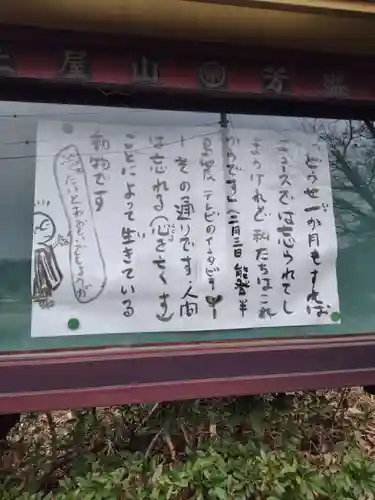 屋山 芳
「どうせ一か月もすれば
ニュースでは忘られてし
まうけれど私たちはこれ
からです」(二月三日 能登半
テレビのインタビュー
その通りです。人間
は忘れる(心を亡くす)
ことによって生きている
動物です